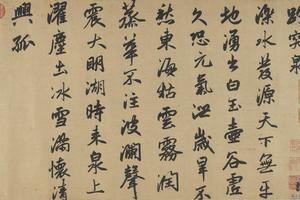 趵突泉
濼水發源天下無平
地湧出白玉壺谷虛
久恐元氣洩歲旱不
愁東海枯雲霧潤
蒸華不注波瀾聲
震大明湖時来泉上
濯塵土冰雪滿懷清
興孤